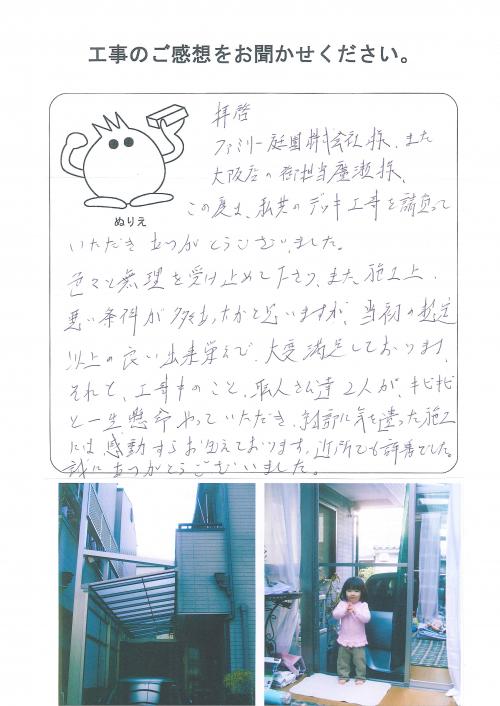 工事のご感想をお聞かせください。
拝啓
ファミリー庭園株式会社様、また
大阪店の御担当廣瀬様、
ぬりえ
この度は、私共のデッキ工事を請負って
いただきありがとうございました。
色々と無理を受け止めて下さり、また、施工上、
悪い条件が多かったかと思いますが、当初の想定
以上の良い出来栄えで、大変満足しております。
それと、工事中のこと、職人さん達2人が、キビキビ
と一生懸命やっていただき、細部に気を遣った施工
には感動すらおぼえております。近所でも評善でした。
誠にありがとうございました。